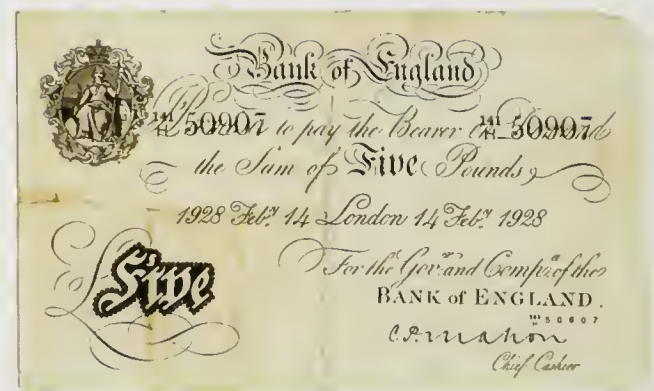 Bank of England
141/H 50907 to pay the Bearer on 141/H 50907
the Sum of Five Pounds
1928 Feb.y 14 London 14 Feb.y 1928
For the Gov.r and Comp.a of the
BANK of ENGLAND.
50607
£Five
C.P. Mahon
Chief Cashier